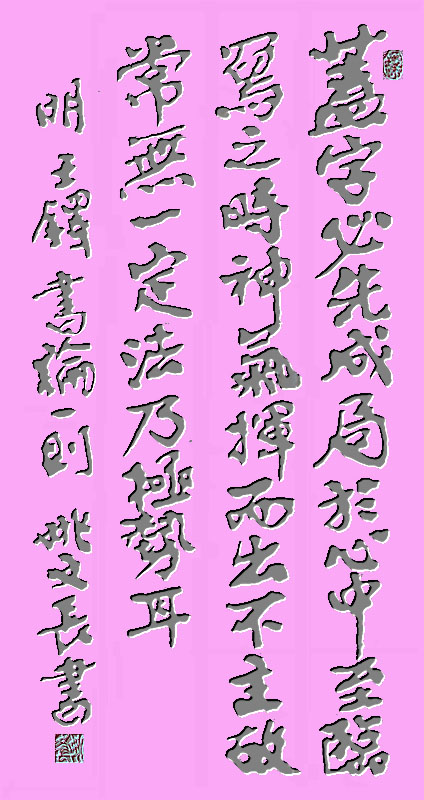 蓋字必先成局於心中至臨
寫之時神氣揮而出不主故
常無一定法乃極勢耳
明 王鐸 書論一則 姚文長書